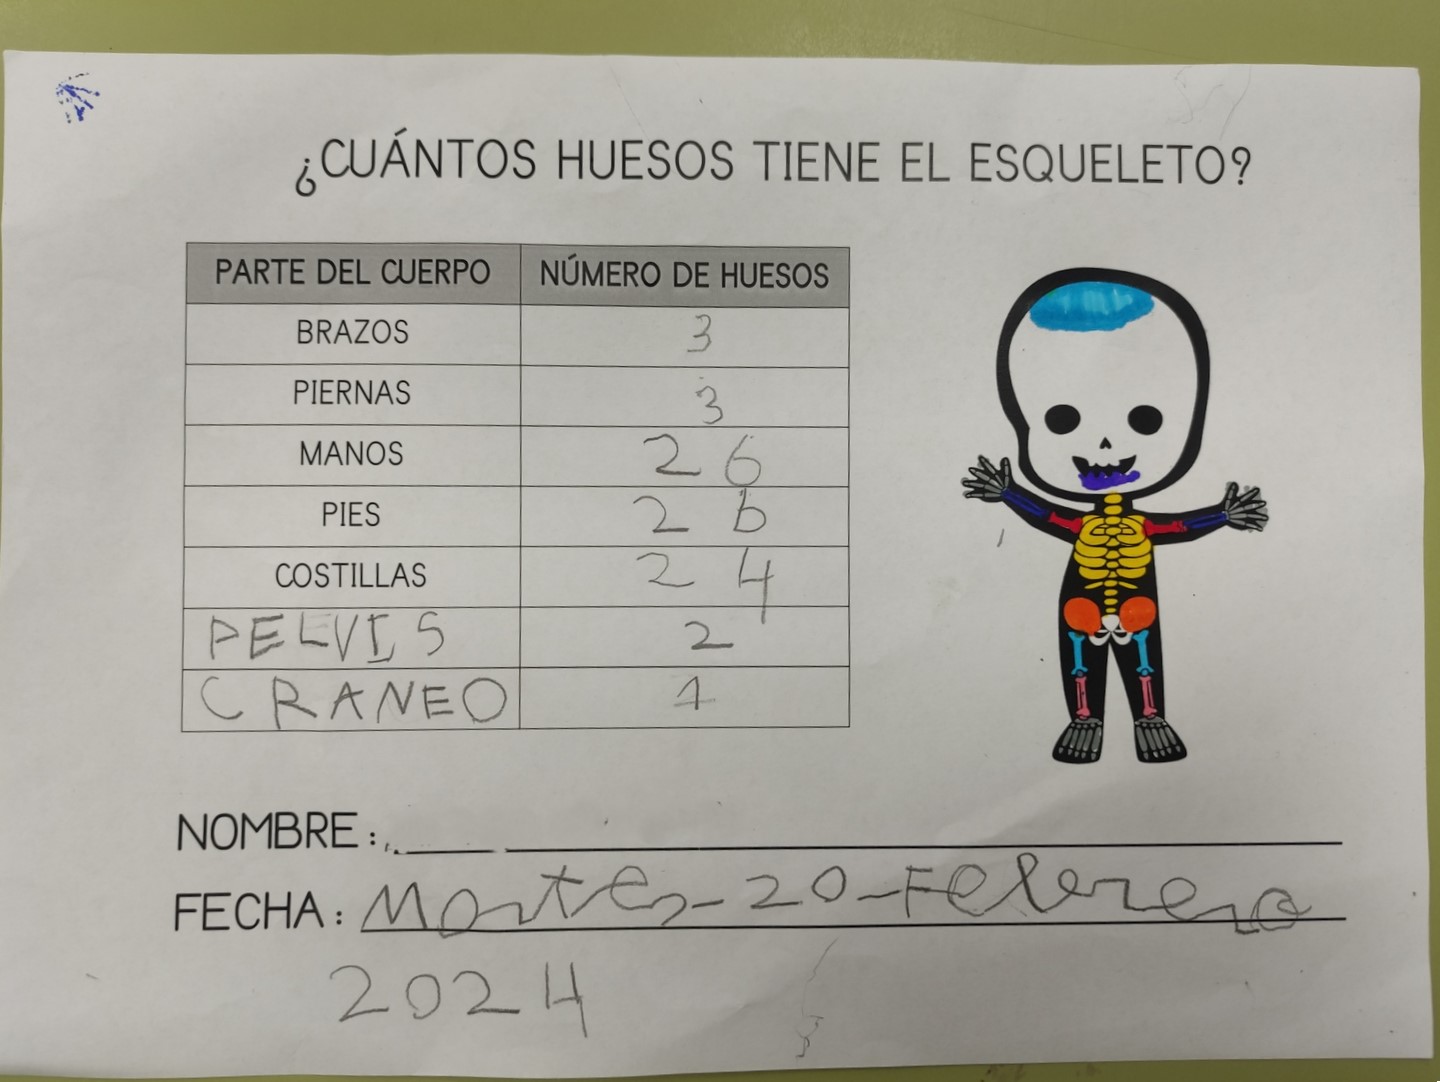 ¿CUÁNTOS HUESOS TIENE EL ESQUELETO?
PARTE DEL CUERPO NÚMERO DE HUESOS
BRAZOS 3
PIERNAS 3
MANOS 26
PIES 26
COSTILLAS 24
PELVIS 2
CRANEO 1
NOMBRE:
FECHA: Martes-20-Febrero
2024